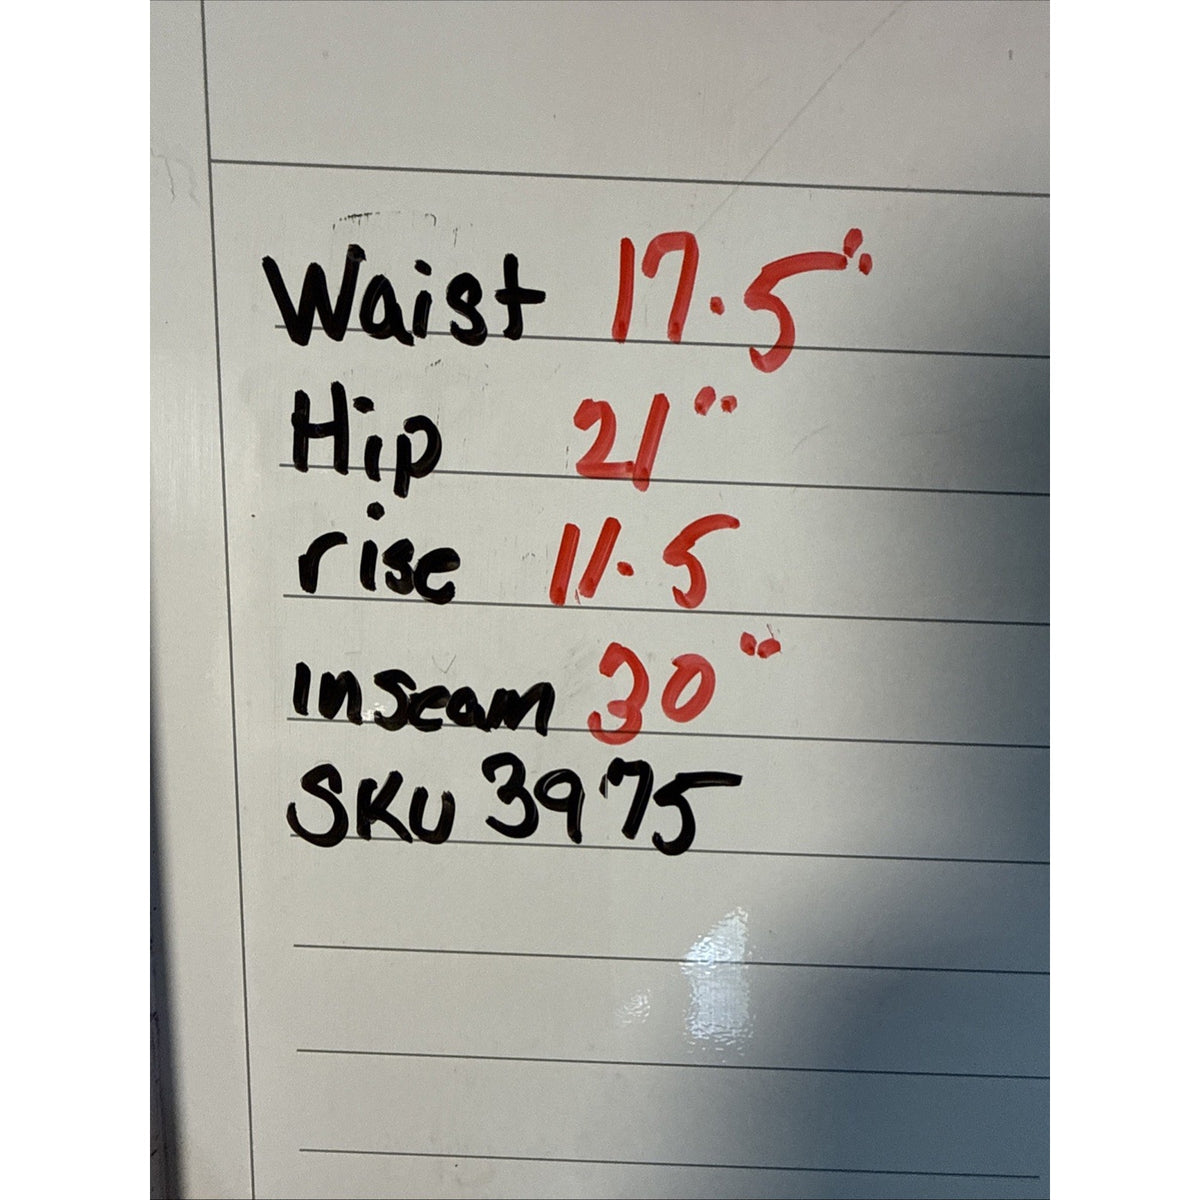 Waist 17.5"
Hip 21"
rise 11.5
Inseam 30"
SKU 3975